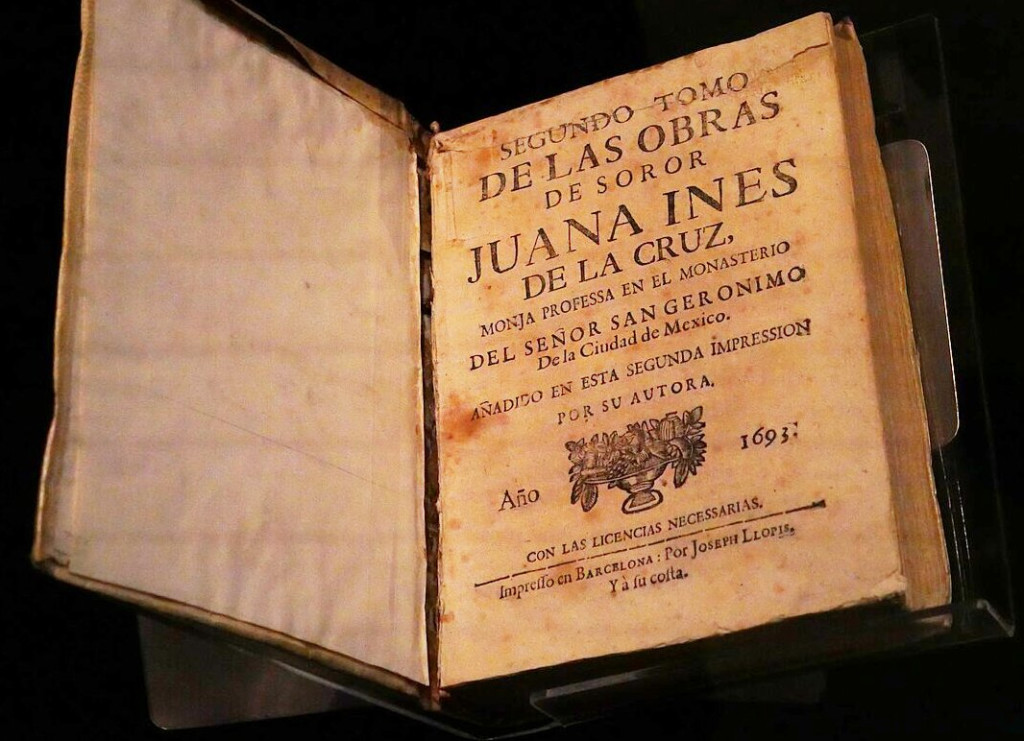 SEGUNDO TOMO
DE LAS OBRAS
DE SOROR
JUANA INES
DE LA CRUZ,
MONJA PROFESSA EN EL MONASTERIO
DEL SEÑOR SAN GERONIMO
De la Ciudad de Mexico.
AÑADIDO EN ESTA SEGUNDA IMPRESSION
POR SU AUTORA.
Año 1693.
CON LAS LICENCIAS NECESSARIAS.
Impreſſo en BARCELONA: Por JOSEPH LLOPIS.
Y à ſu coſta.